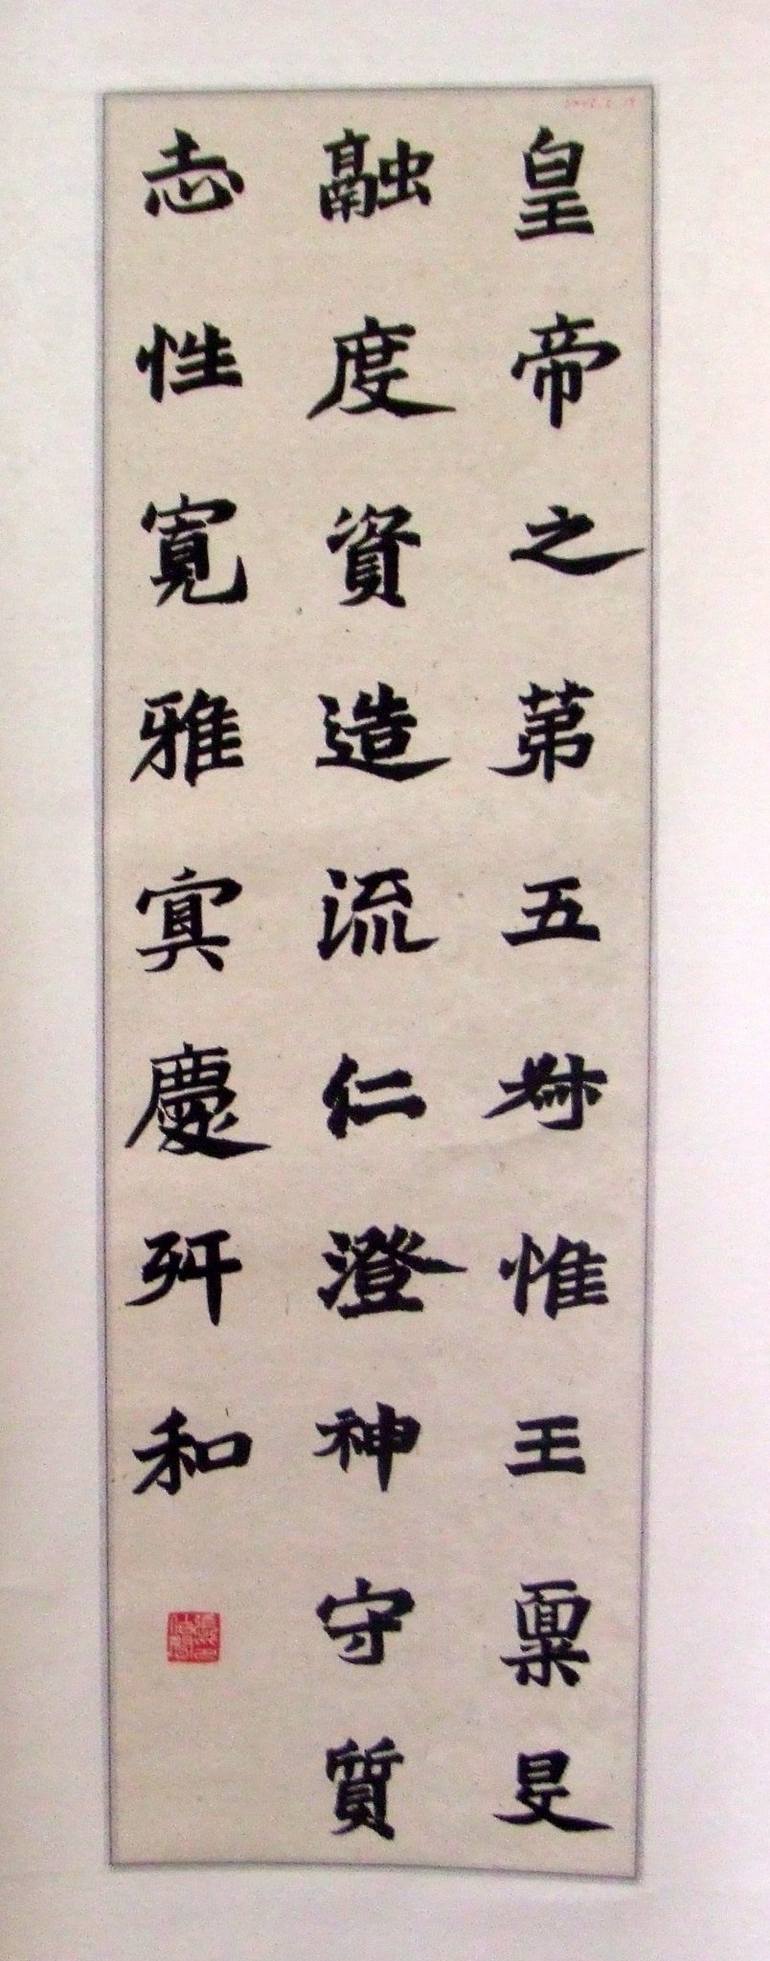 皇帝之苐五㭒惟王稟旻
融度資造流仁澄神守質
志性寛雅寘慶㱔和